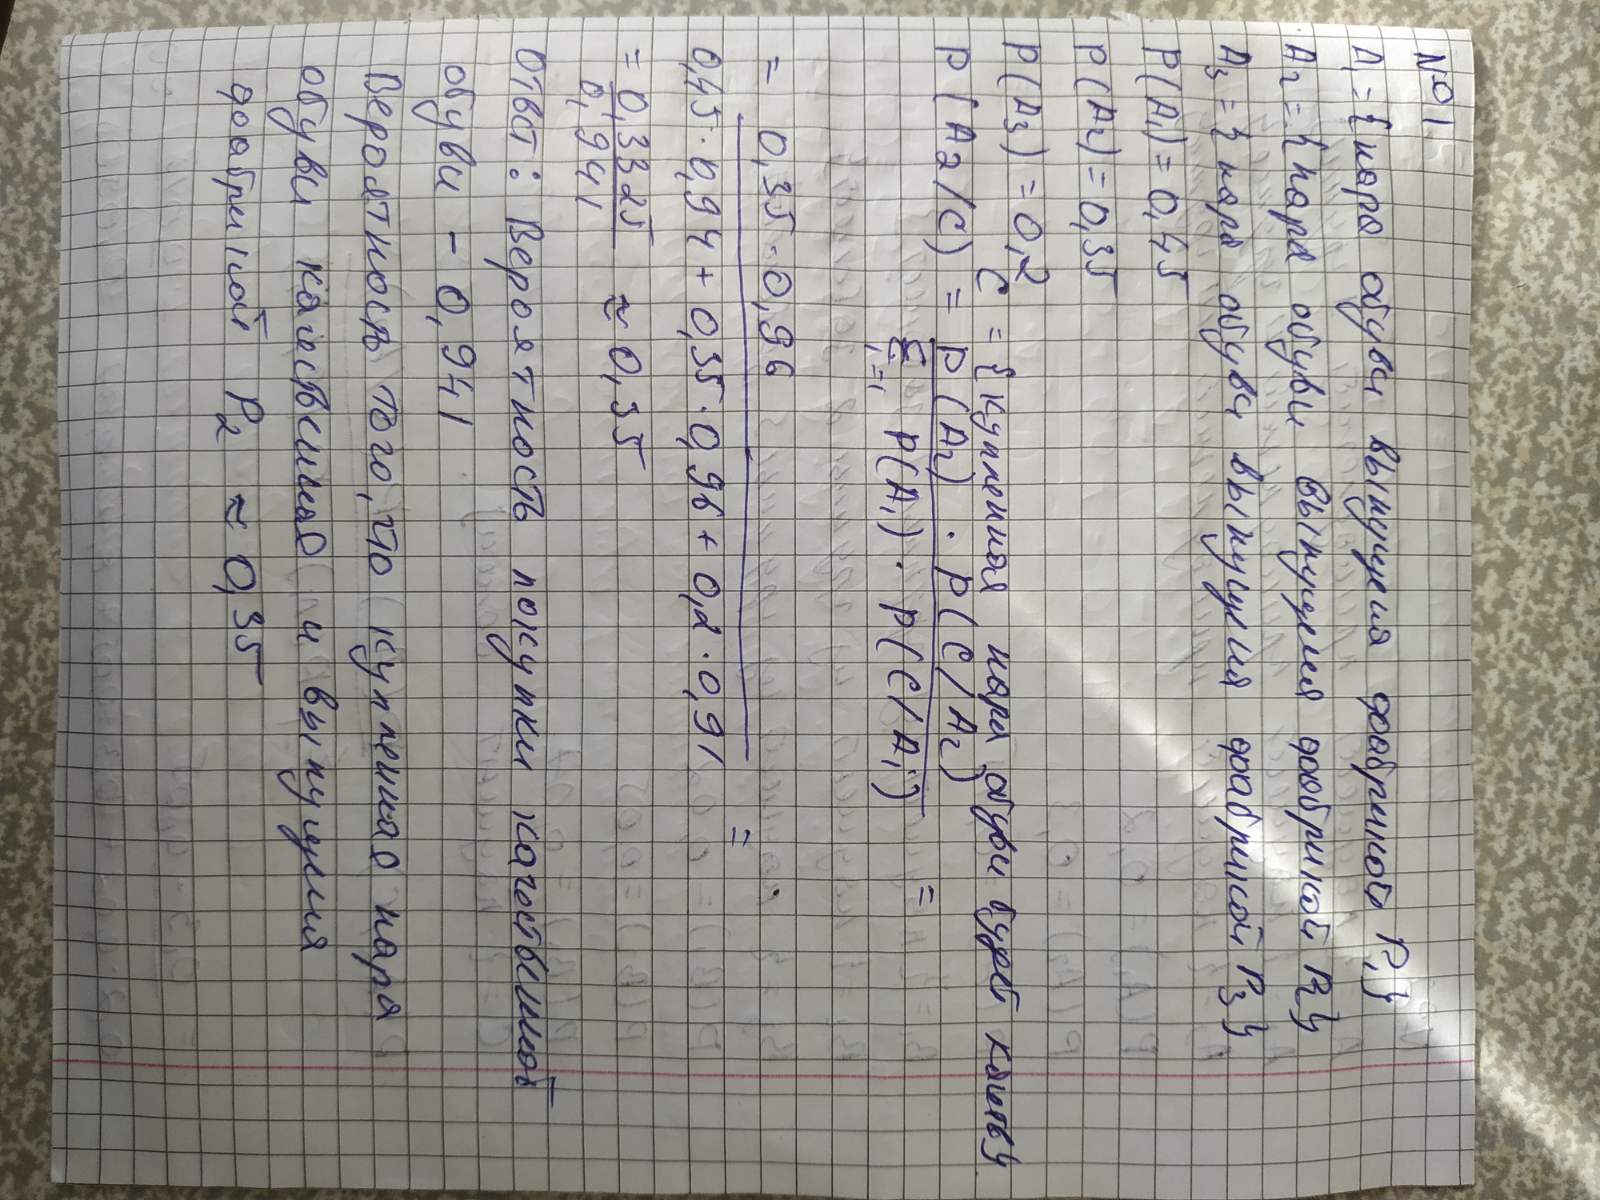 № 1
A1 = {пара обуви выпущена фабрикой P1}
A2 = {пара обуви выпущена фабрикой P2}
A3 = {пара обуви выпущена фабрикой P3}
P(A1) = 0,45
P(A2) = 0,35
P(A3) = 0,2
C = {купленная пара обуви будет каств}
P(A2/C) = P(A2) · P(C/A2) =
Σ i=1 P(Ai) · P(C/Ai)
= 0,35 · 0,96 =
0,45 · 0,94 + 0,35 · 0,96 + 0,2 · 0,91
= 0,3325 ≈ 0,35
0,941
Ответ: Вероятность покупки качественной
обуви – 0,941
Вероятность того, что купленная пара
обуви качественная и выпущена
фабрикой P2 ≈ 0,35